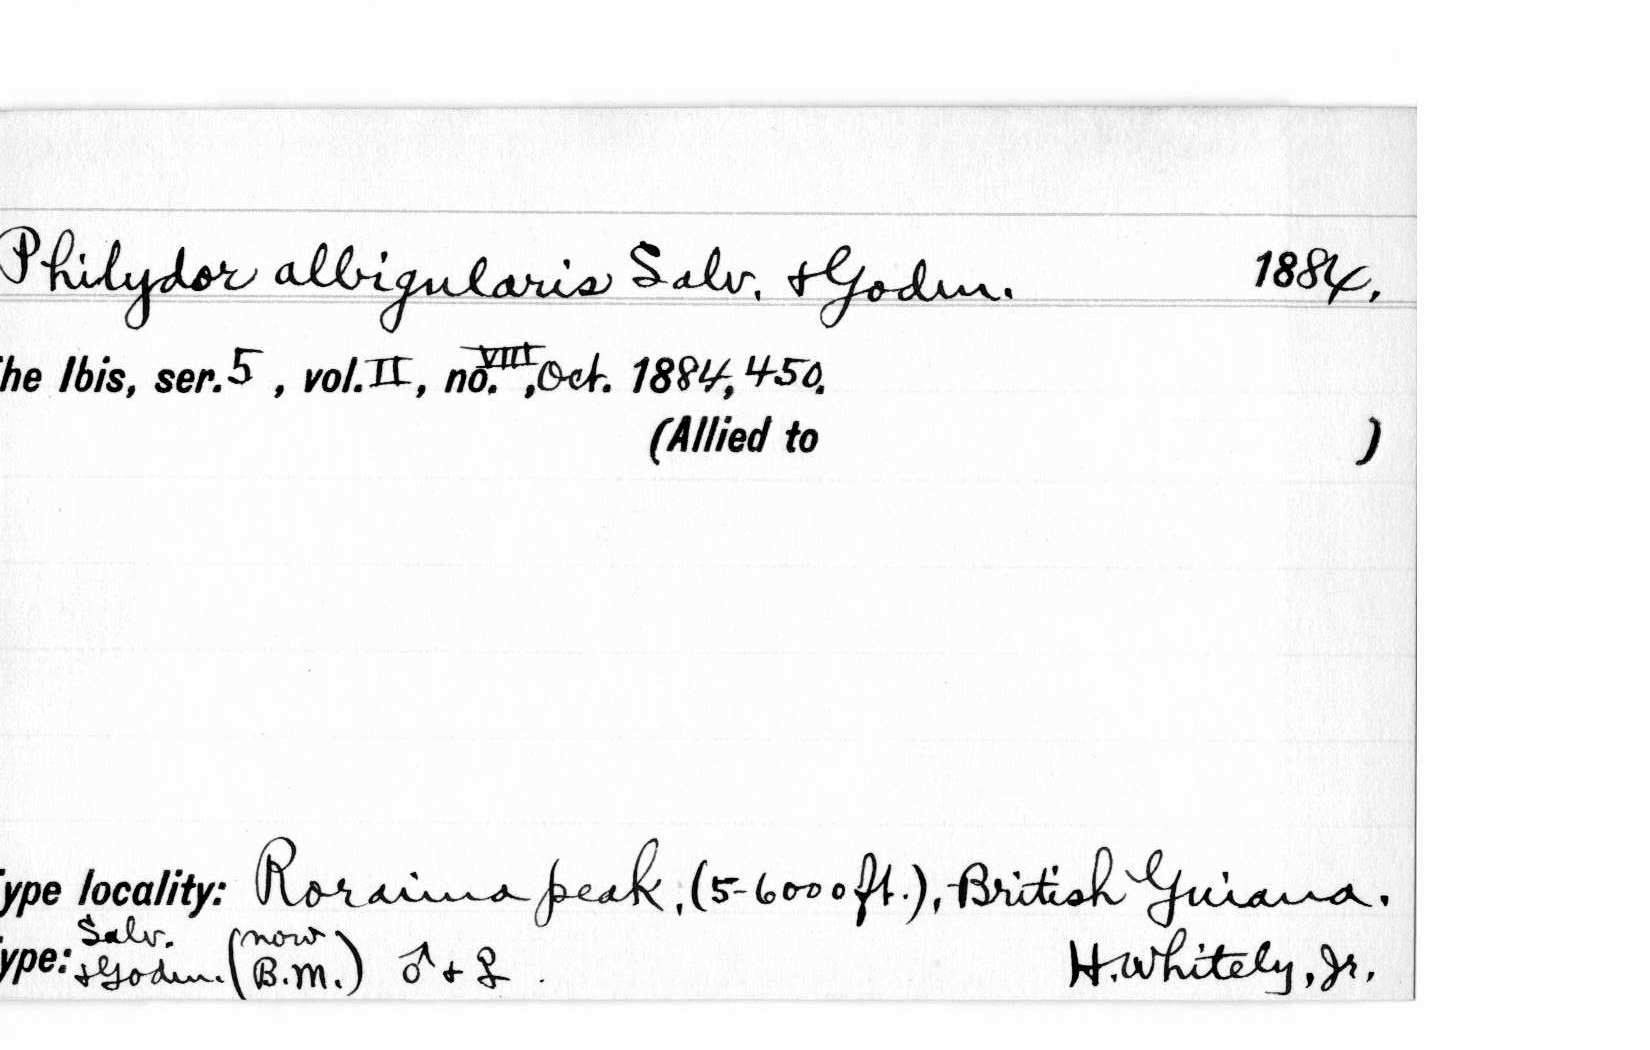 Philydor albigularis Salv. & Godm. 1884.
he Ibis, ser. 5, vol. II, no. VIII, Oct. 1884, 450.
(Allied to )
ype locality: Roraima peak, (5-6000 ft.), British Guiana.
ype: Salv. & Godm. (now B.M.) ♂ & ♀. H. Whitely, Jr.